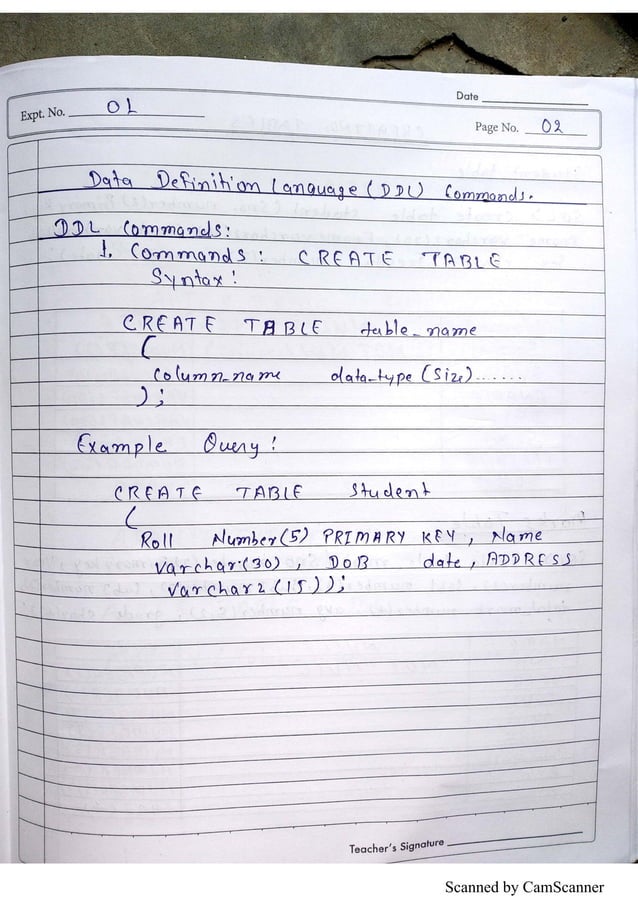 Date
Expt. No. 01
Page No. 02
Data Definition Language (DDL) Commands.
DDL Commands:
1. Commands : CREATE TABLE
Syntax:
CREATE TABLE table_name
(
column_name data_type (Size)......
);
Example Query:
CREATE TABLE Student
(
Roll Number(5) PRIMARY KEY, Name
varchar(30), DOB date, ADDRESS
varchar2(15));
Teacher's Signature
Scanned by CamScanner